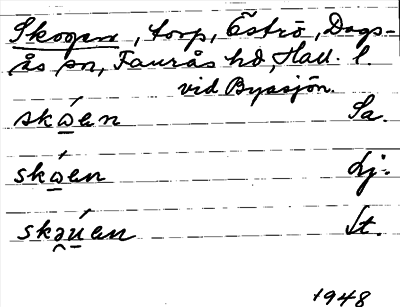 Skogen, torp, Éströ, Dags-
ås sn, Faurås hd, Hall. l.
vid Byasjön.
skώen Sa.
skώen Lj.
skəúen St.
1948